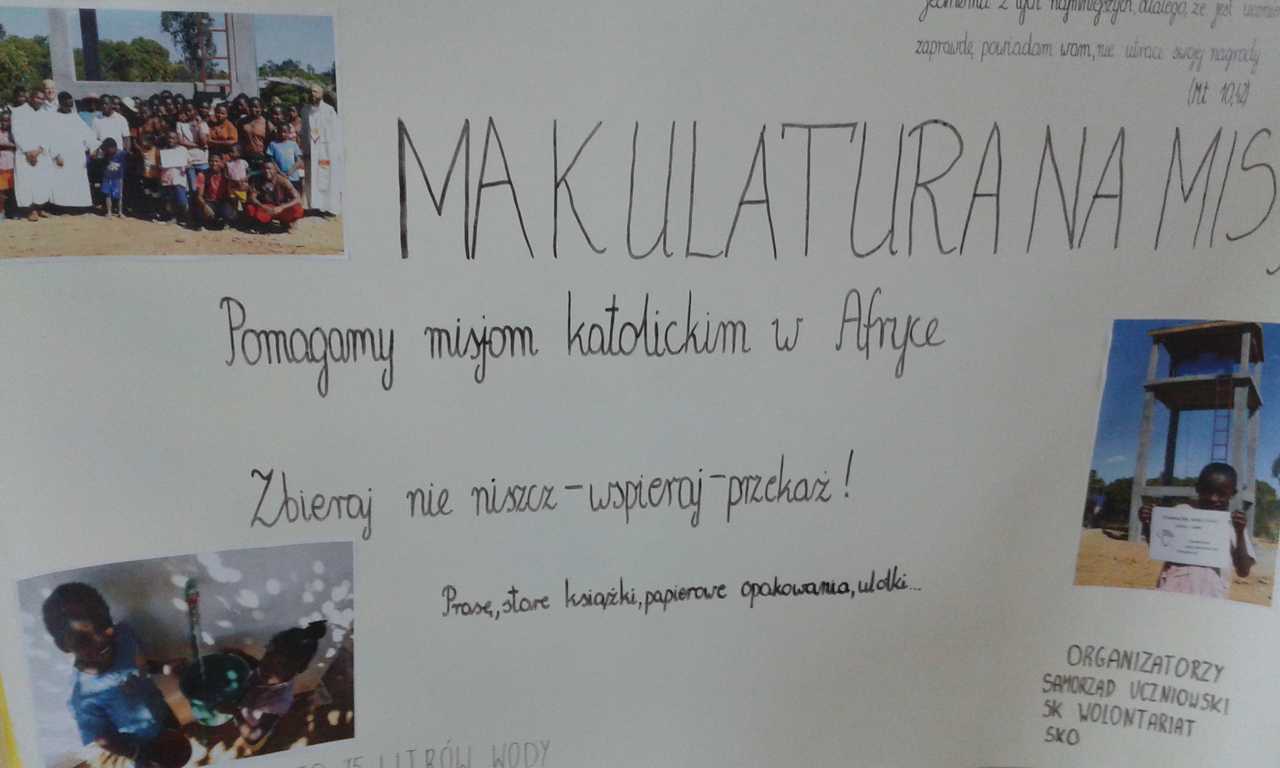 jednemu z tych najmniejszych, dlatego, że jest
zaprawdę powiadam wam, nie utraci swojej nagrody
(Mt 10,42)
MAKULATURA NA MISJ
Pomagamy misjom katolickim w Afryce
Zbieraj nie niszcz - wspieraj - przekaż!
Prasę, stare książki, papierowe opakowania, ulotki...
ORGANIZATORZY
SAMORZĄD UCZNIOWSKI
SK WOLONTARIAT
SKO
75 LITRÓW WODY